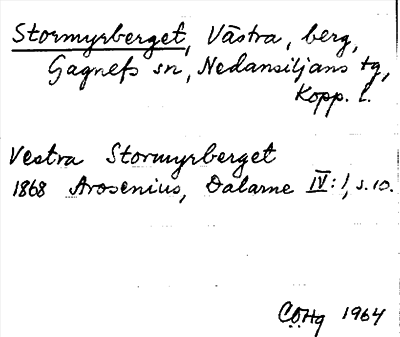 Stormyrberget, Västra, berg,
Gagnefs sn, Nedansiljans tg,
Kopp. l.
Vestra Stormyrberget
1868 Arosenius, Dalarne IV: 1, s. 10.
CÖHg 1964